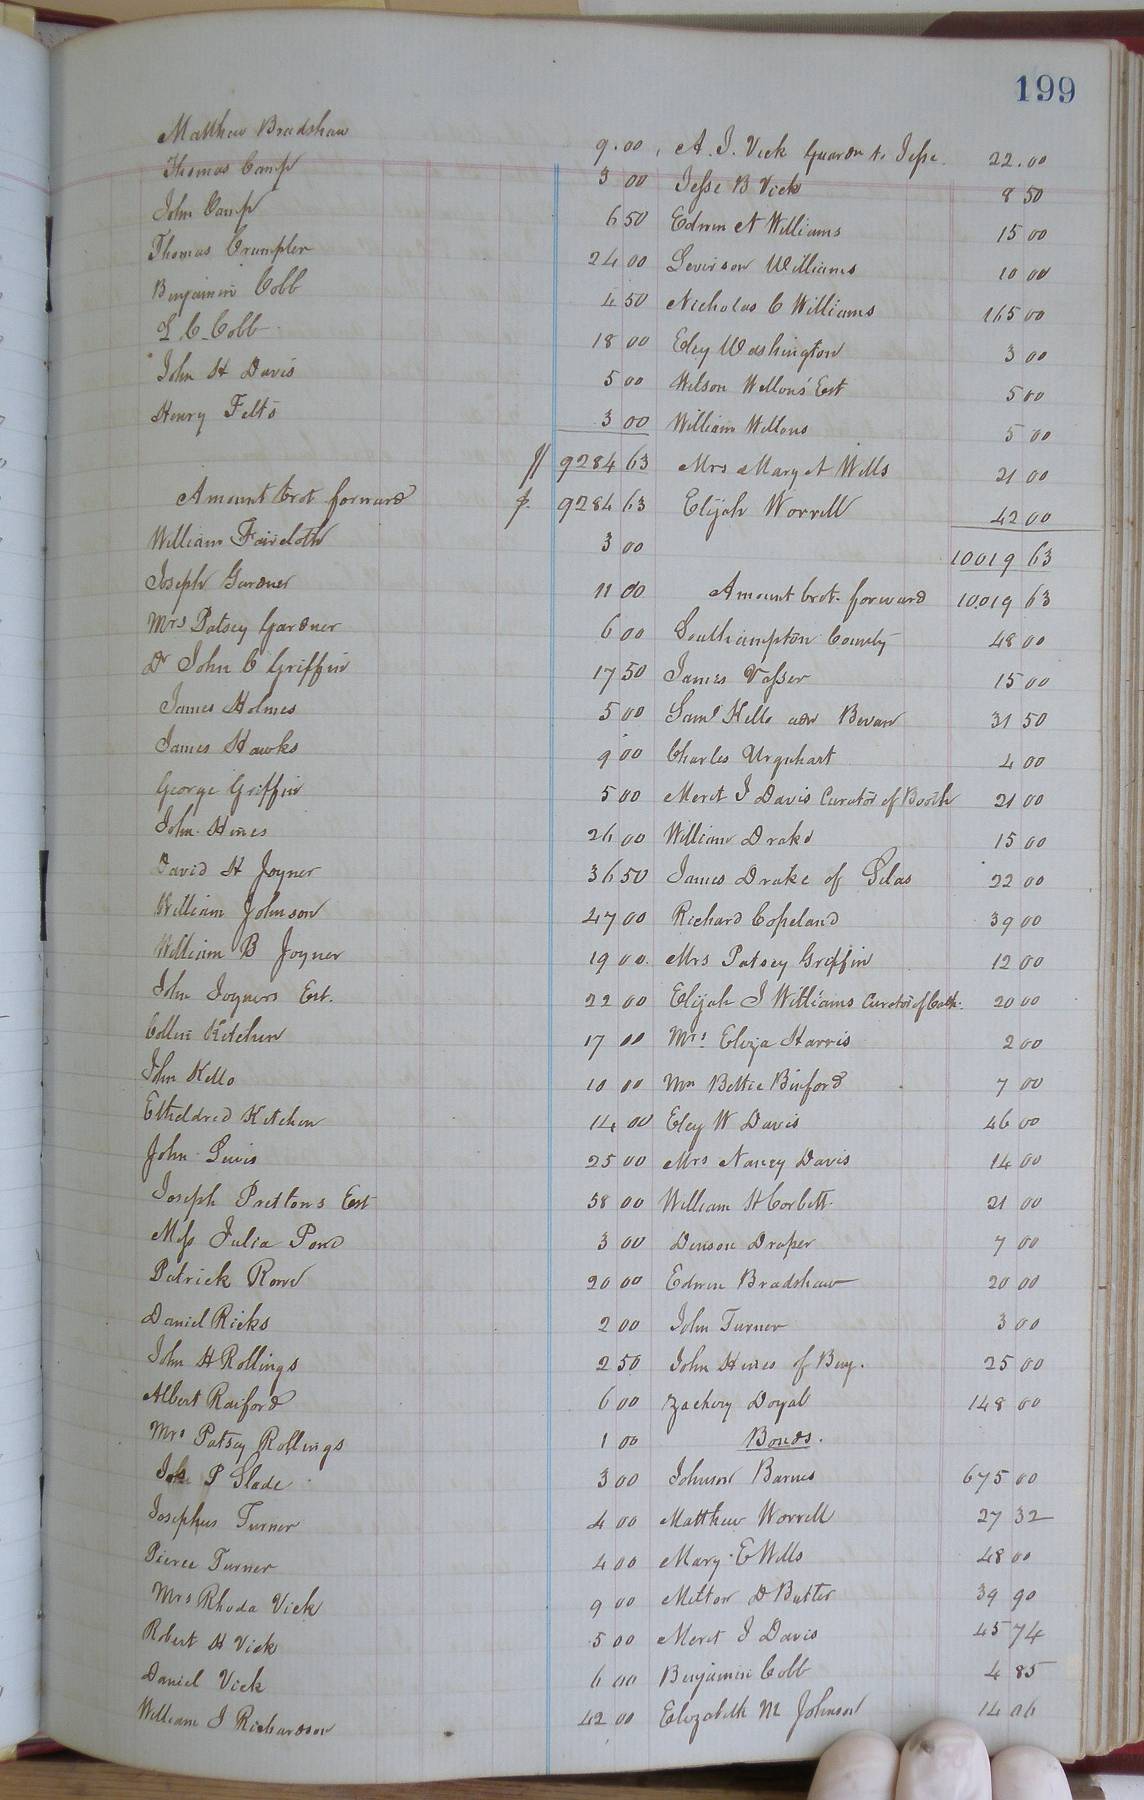 199
Matthew Bradshaw 9.00
Thomas Camp 3 00
John Camp 6 50
Thomas Crumpler 24 00
Benjamin Cobb 4 50
L C Cobb 18 00
John H Davis 5 00
Henry Felts 3 00
9284 63
Amount brot forward $ 9284 63
William Faircloth 3 00
Joseph Gardner 11 00
Mrs Patsey Gardner 6 00
Dr John C Griffin 17 50
James Holmes 5 00
James Hawks 9 00
George Griffin 5 00
John Hines 26 00
David H Joyner 36 50
William Johnson 47 00
William B Joyner 19 00
John Joyners Est. 22 00
Collin Kitchen 17 00
John Kello 10 00
Etheldred Kitchen 14 00
John Lewis 25 00
Joseph Prettons Est 58 00
Miss Julia Pond 3 00
Patrick Rowe 20 00
Daniel Ricks 2 00
John H Rollings 2 50
Albert Raiford 6 00
Mrs Patsey Rollings 1 00
P Slade 3 00
Josephus Turner 4 00
Pierce Turner 4 00
Mrs Rhoda Vick 9 00
Robert H Vick 5 00
Daniel Vick 6 00
William J Richardson 42 00
A. J. Vick Guardn to Jesse 22.00
Jesse B Vick 8 50
Edwin A Williams 15 00
Levinson Williams 10 00
Nicholas C Williams 165 00
Eley Washington 3 00
Wilson Wellons' Est 5 00
William Wellons 5 00
Mrs Mary A Wills 21 00
Elijah Worrell 42 00
10019 63
Amount brot. forward 10019 63
Southampton County 48 00
James Vasser 15 00
Saml Kello adm Bevan 31 50
Charles Urquhart 4 00
Meret J Davis Curator of Booth 21 00
William Drake 15 00
James Drake of Silas 22 00
Richard Copeland 39 00
Mrs Patsey Griffin 12 00
Elijah J Williams Curator of 20 00
Mrs. Eliza Harris 2 00
Mrs Bettie Binford 7 00
Eley W Davis 46 00
Mrs Nancy Davis 14 00
William H Corbett 21 00
Denson Draper 7 00
Edwin Bradshaw 20 00
John Turner 3 00
John Hines of Benj. 25 00
Zachery Doyal 148 00
Bonds.
Johnson Barnes 675 00
Matthew Worrell 27 32
Mary E Wells 48 00
Melton D Butler 39 90
Meret J Davis 45 74
Benjamin Cobb 4 85
Elizabeth M Johnson 14 06